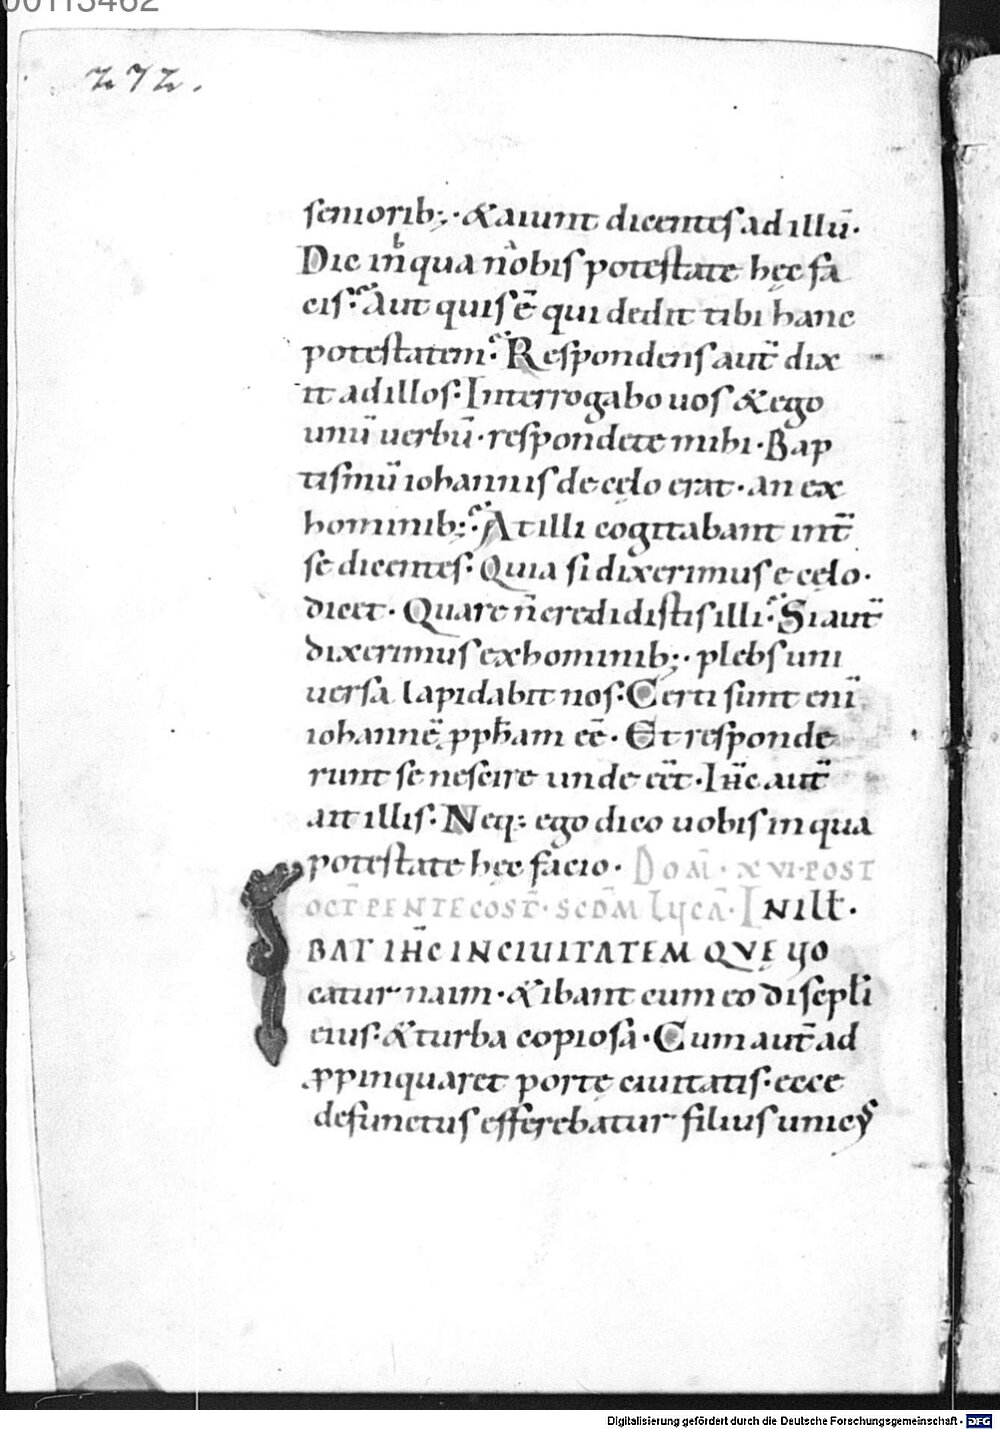 00113462
272.
seniorib;· & aiunt dicentes ad illū·
Dic in qua nobis potestate hęc fa
cis· Aut quis ē qui dedit tibi hanc
potestatem· Respondens aut̄ dix
it ad illos· Interrogabo uos & ego
unū uerbū· respondete mihi· Bap
tismū iohannis de cęlo erat· an ex
hominib;· At illi cogitabant int̄
se dicentes· Quia si dixerimus e cęlo·
dicet· Quare n̄ credidistis illi· Si aut̄
dixerimus ex hominib;· plebs uni
uersa lapidabit nos· Certi sunt eni̅
iohannē ꝓph̄am eē· Et responde
runt se nescire unde eēt· Ih̄c aut̄
ait illis· Neq; ego dico uobis in qua
potestate hęc facio· Dom̄· XVI· POST
OCT̄ PENTECOST̄· SCD̄M LUCĀ· IN ILL̄T·
IBAT IH̄C IN CIUITATEM QVĘ UO
catur naim· & ibant cum eo discipl̄i
eius· & turba copiosa· Cum aut̄ ad
ꝓpinquaret portę ciuitatis· ecce
defunctus efferebatur filius unicus
Digitalisierung gefördert durch die Deutsche Forschungsgemeinschaft - DFG